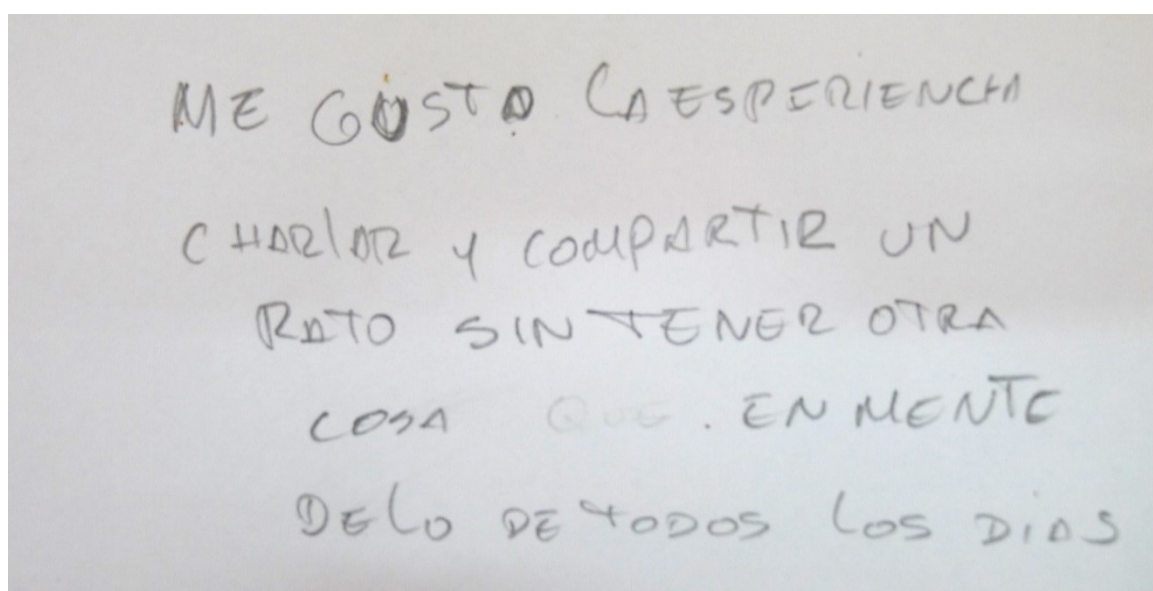 ME GUSTO LA ESPERIENCIA
CHARlAR Y COMPARTIR UN
RATO SIN TENER OTRA
COSA QUE . EN MENTE
DE LO DE TODOS LOS DIAS